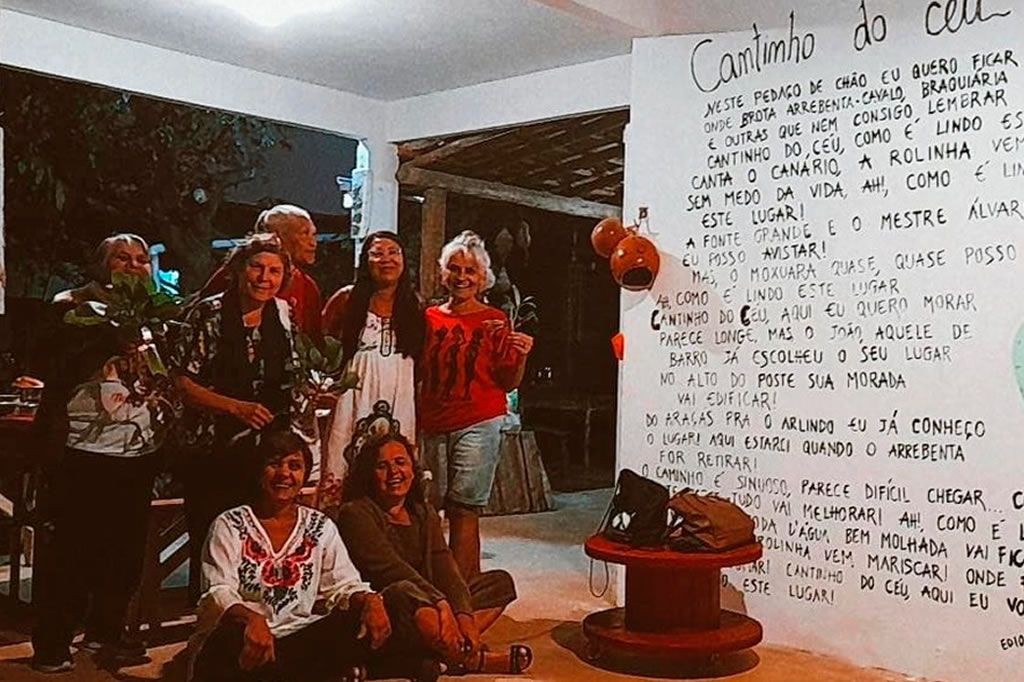 Cantinho do céu
NESTE PEDAÇO DE CHÃO EU QUERO FICAR
ONDE BROTA ARREBENTA-CAVALO, BRAQUIÁRIA
E OUTRAS QUE NEM CONSIGO LEMBRAR
CANTINHO DO CÉU, COMO É LINDO ES
CANTA O CANÁRIO, A ROLINHA VEM
SEM MEDO DA VIDA, AH!, COMO É LIN
ESTE LUGAR!
A FONTE GRANDE E O MESTRE ÁLVAR
EU POSSO AVISTAR!
MAS, O MOXUARA QUASE, QUASE POSSO
AH, COMO É LINDO ESTE LUGAR
CANTINHO DO CÉU, AQUI EU QUERO MORAR
PARECE LONGE, MAS O JOÃO, AQUELE DE
BARRO JÁ ESCOLHEU O SEU LUGAR
NO ALTO DO POSTE SUA MORADA
VAI EDIFICAR!
DO ARAÇAS PRA O ARLINDO EU JÁ CONHEÇO
O LUGAR! AQUI ESTAREI QUANDO O ARREBENTA
FOR RETIRAR!
O CAMINHO É SINUOSO, PARECE DIFÍCIL CHEGAR... C
TUDO VAI MELHORAR! AH!, COMO É L
ODA D'ÁGUA, BEM MOLHADA VAI FIC
ROLINHA VEM, MARISCAR! ONDE
CANTINHO DO CÉU, AQUI EU VO
ESTE LUGAR!